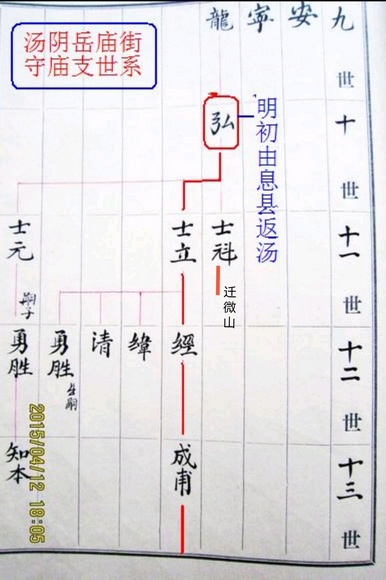 汤阴岳庙街
守庙支世系
九世
安
寧
龍
十世
弘
明初由息县返汤
十一世
士科
迁微山
士立
士元
十二世
經
緯
清
勇胜
出嗣
嗣子
勇胜
十三世
成甫
知本
2015/04/12 18:05